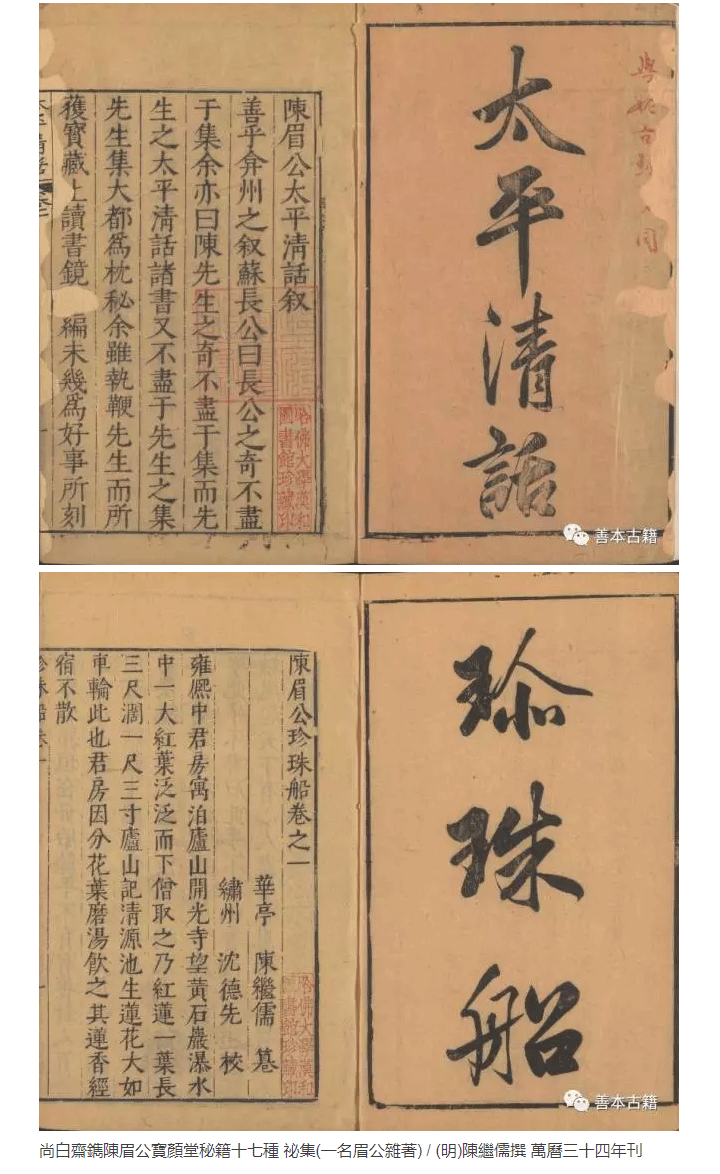 太平清話
陳眉公太平清話叙
善乎弇州之叙蘇長公曰長公之奇不盡
于集余亦曰陳先生之奇不盡于集而先
生之太平清話諸書又不盡于先生之集
先生集大都爲枕秘余雖執鞭先生而所
獲寳藏上讀書鏡 編未幾爲好事所刻
哈佛大學漢和
圖書館珍藏印
善本古籍
珎珠船
陳眉公珍珠船卷之一
華亭 陳繼儒 篹
繡州 沈德先 校
雍熈中君房寓泊廬山開光寺望黄石巖瀑水
中一大紅葉泛泛而下僧取之乃紅蓮一葉長
三尺濶一尺三寸廬山記清源池生蓮花大如
車輪此也君房因分花葉磨湯飲之其蓮香經
宿不散
哈佛大學漢和
圖書館珍藏印
善本古籍
尚白齋鐫陳眉公寶顏堂秘籍十七種 祕集(一名眉公雜著) / (明)陳繼儒撰 萬曆三十四年刊